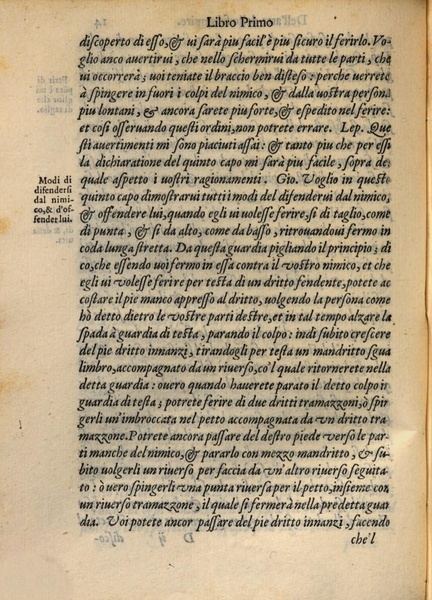 Libro Primo
discoperto di esso, & ui sarà piu facil'è piu sicuro il ferirlo. Vo
glio anco auertirui, che nello schermirui da tutte le parti, che
ui occorrerà; uoi teniate il braccio ben disteso: perche uerrete
à spingere in fuori i colpi del nimico, & dalla vostra persona
piu lontani, & ancora sarete piu forte, & espedito nel ferire:
et cosi osseruando questi ordini, non potrete errare. Lep. Que
sti auertimenti mi sono piaciuti assai: & tanto piu che per essi
la dichiaratione del quinto capo mi sarà piu facile, sopra de
quale aspetto i uostri ragionamenti. Gio. Voglio in questo
quinto capo dimostrarui tutti i modi del difenderui dal nimico,
& offendere lui, quando egli ui uolesse ferire, si di taglio, come
di punta, & si da alto, come da basso, ritrouandoui fermo in
coda lunga stretta. Da questa guardia pigliando il principio; di
co, che essendo uoi fermo in essa contra il vostro nimico, et che
egli ui volesse ferire per testa di un dritto fendente, potete ac
costare il pie manco appresso al dritto, uolgendo la persona come
hò detto dietro le vostre parti destre, et in tal tempo alzare la
spada à guardia di testa, parando il colpo: indi subito crescere
del pie dritto innanzi, tirandogli per testa un mandritto sgua
limbro, accompagnato da un riuerso, co'l quale ritornerete nella
detta guardia: ouero quando hauerete parato il detto colpo in
guardia di testa; potrete ferire di due dritti tramazzoni, ò spin
gerli un'imbroccata nel petto accompagnata da vn dritto tra
mazzone. Potrete ancora passare del destro piede uerso le par
ti manche del nimico, & pararlo con mezzo mandritto, & su-
bito uolgerli un riuerso per faccia da vn'altro riuerso seguita
to: ò uero spingerli vna punta riuersa per il petto, insieme con
un riuerso tramazzone, il quale si fermerà nella predetta guar
dia. Voi potete ancor passare del pie dritto innanzi, facendo
che'l
Modi di
difendersi
dal nimi-
co, & d'of-
fender lui.